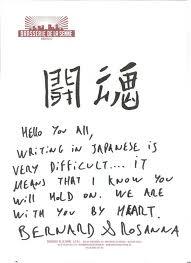 BRASSERIE DE LA SENNE
闘魂
HELLO YOU ALL,
WRITING IN JAPANESE IS
VERY DIFFICULT.... IT
MEANS THAT I KNOW YOU
WILL HOLD ON. WE ARE
WITH YOU BY HEART.
BERNARD & ROSANNA